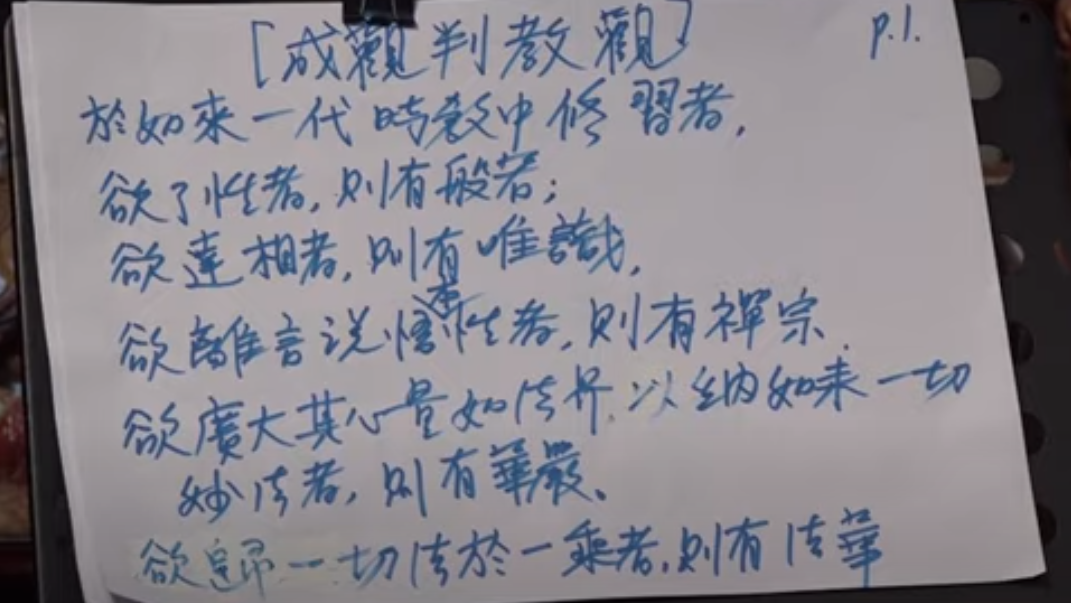 [成觀判教觀]
p.1.
於如來一代時教中修習者，
欲了性者，則有般若；
欲達相者，則有唯識，
欲離言說悟本性者，則有禪宗．
欲廣大其心量如法界，以納如来一切
妙法者，則有華嚴、
欲歸一切法於一乘者，則有法華